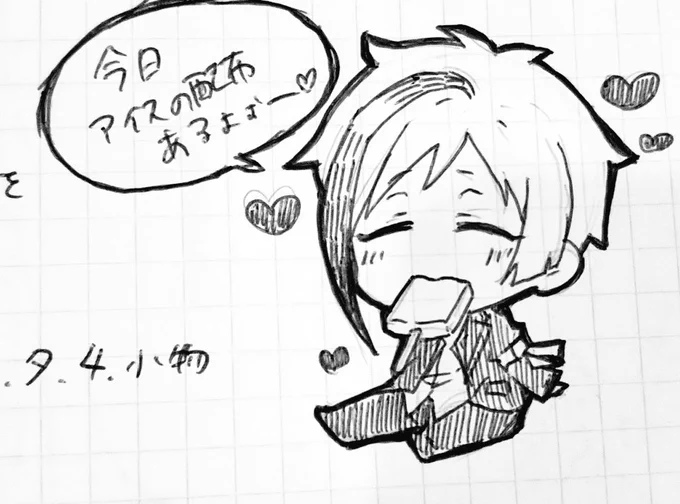 今日
アイスの配布
あるよぉー♡
を
.タ.4.小物